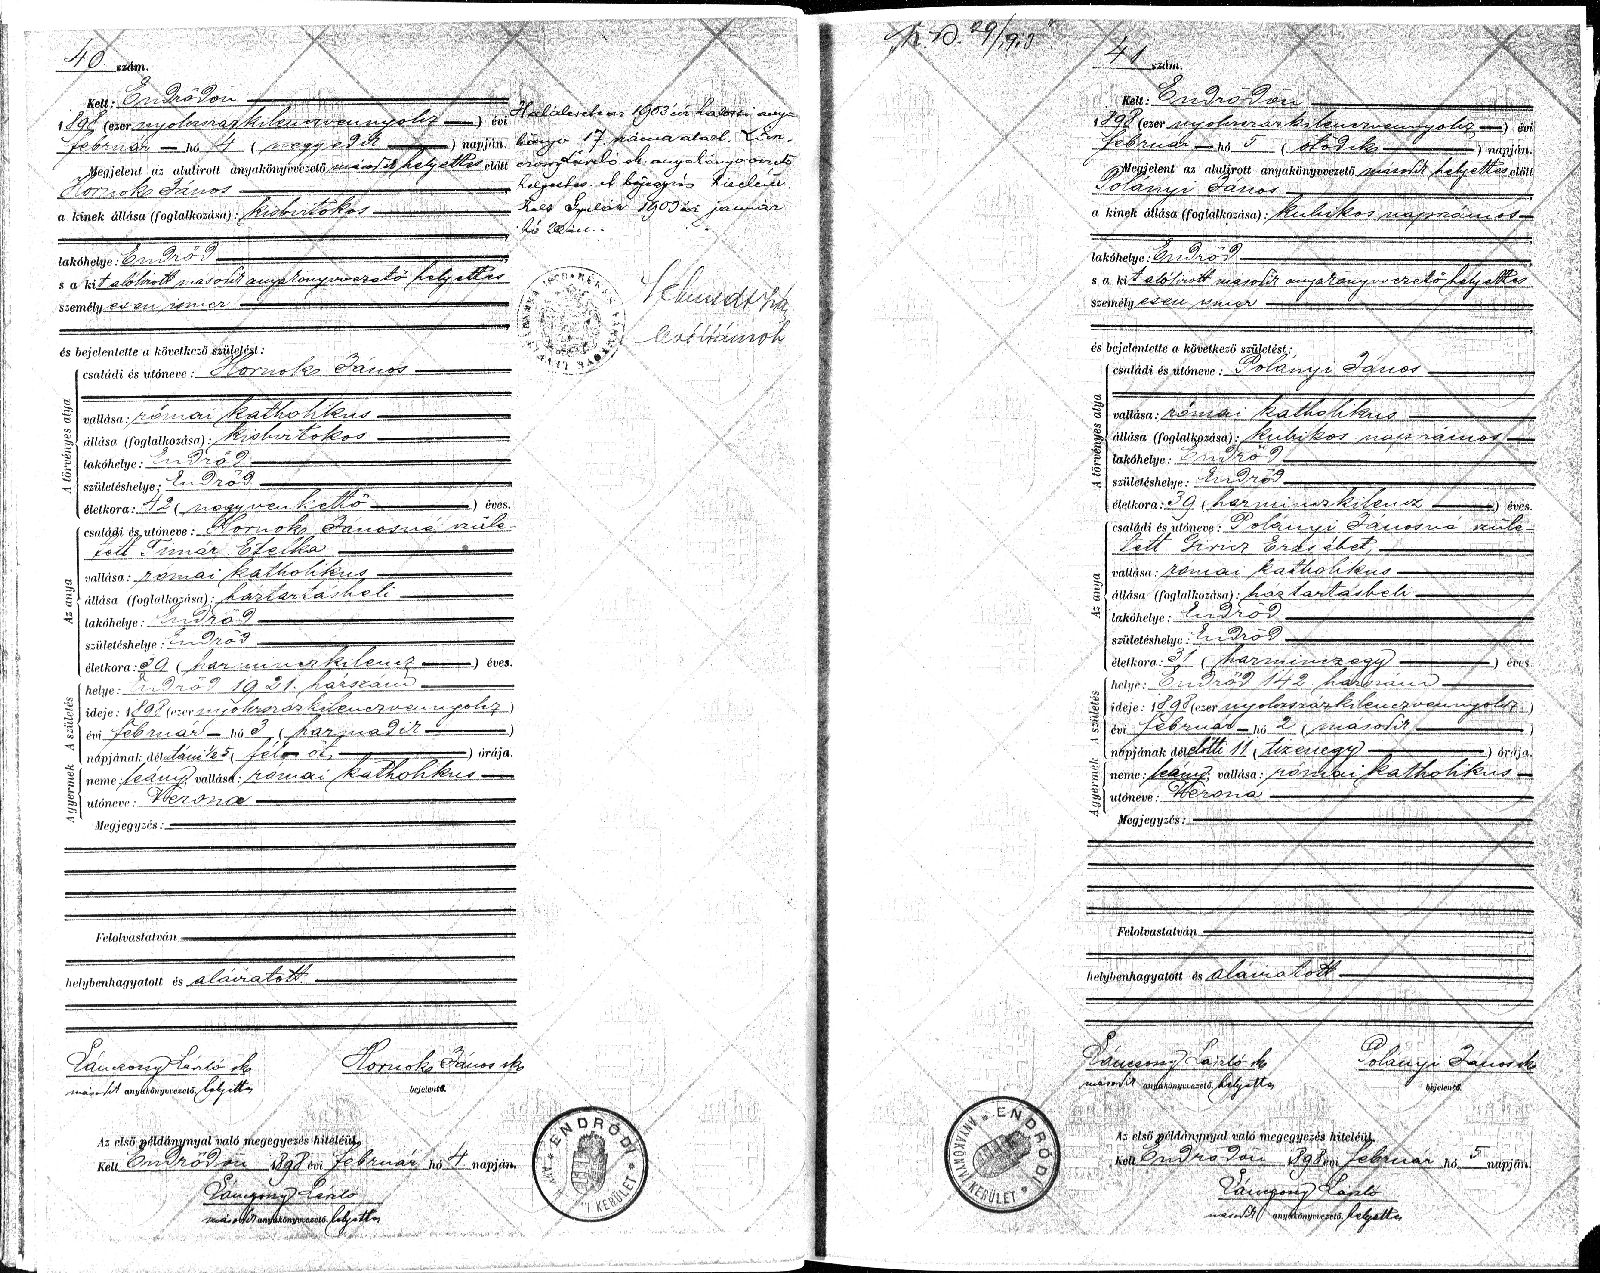 40 szám.
Kelt: Endrődön
1898 (ezer nyolcszázkilenczvennyolcz) évi
február hó 4 (negyedik) napján.
Megjelent az alulirott anyakönyvvezető második helyettes előtt
Hornok János
a kinek állása (foglalkozása): kisbirtokos
lakóhelye: Endrőd
s a kit alólirott második anyakönyvvezető helyettes
személyesen ismer
és bejelentette a következő születést:
A törvényes atya
családi és utóneve: Hornok János
vallása: római katholikus
állása (foglalkozása): kisbirtokos
lakóhelye: Endrőd
születéshelye: Endrőd
életkora: 42 (negyvenkettő) éves.
Az anya
családi és utóneve: Hornok Jánosné szüle-
tett Timár Etelka
vallása: római katholikus
állása (foglalkozása): háztartásbeli
lakóhelye: Endrőd
születéshelye: Endrőd
életkora: 39 (harminczkilencz) éves.
A születés
helye: Endrőd 1921. házszám
ideje: 1898 (ezer nyolcszázkilenczvennyolcz)
évi február hó 3 (harmadik)
napjának délutáni ½5 (fél öt) órája.
A gyermek
neme: leány, vallása: római katholikus
utóneve: Verona
Megjegyzés:
Felolvastatván
helybenhagyatott és aláiratott
Lánczony László sk Hornok János sk
második anyakönyvvezető helyettes bejelentő.
Az első példánynyal való megegyezés hiteléül,
Kelt Endrődön 1898 évi február hó 4 napján.
Lánczony László
második anyakönyvvezető helyettes
ENDRŐDI
KERÜLET
Haláleset az 1903 évi halotti anya-
könyv 17. száma alatt. Lán-
czony László sk. anyakönyvvezető
helyettes
Kelt Gyulán 1903 évi január
hó
41 szám.
Kelt: Endrődön
1898 (ezer nyolcszázkilenczvennyolcz) évi
február hó 5 (ötödik) napján.
Megjelent az alulirott anyakönyvvezető második helyettes előtt
Polányi János
a kinek állása (foglalkozása): kubikos napszámos
lakóhelye: Endrőd
s a kit alólirott második anyakönyvvezető helyettes
személyesen ismer
és bejelentette a következő születést:
A törvényes atya
családi és utóneve: Polányi János
vallása: római katholikus
állása (foglalkozása): kubikos napszámos
lakóhelye: Endrőd
születéshelye: Endrőd
életkora: 39 (harminczkilencz) éves.
Az anya
családi és utóneve: Polányi Jánosné szüle-
tett Giricz Erzsébet
vallása: római katholikus
állása (foglalkozása): háztartásbeli
lakóhelye: Endrőd
születéshelye: Endrőd
életkora: 31 (harminczegy) éves
A születés
helye: Endrőd 142 házszám
ideje: 1898 (ezer nyolcszázkilenczvennyolcz)
évi február hó 2 (második)
napjának délelőtti 11 (tizenegy) órája.
A gyermek
neme: leány, vallása: római katholikus
utóneve: Verona
Megjegyzés:
Felolvastatván
helybenhagyatott és aláiratott
Lánczony László sk Polányi János sk
második anyakönyvvezető, helyettes bejelentő.
Az első példánynyal való megegyezés hiteléül,
Kelt Endrődön 1898 évi február hó 5 napján.
Lánczony László
második anyakönyvvezető, helyettes
ENDRŐDI
ANYAKÖNYVI KERÜLET